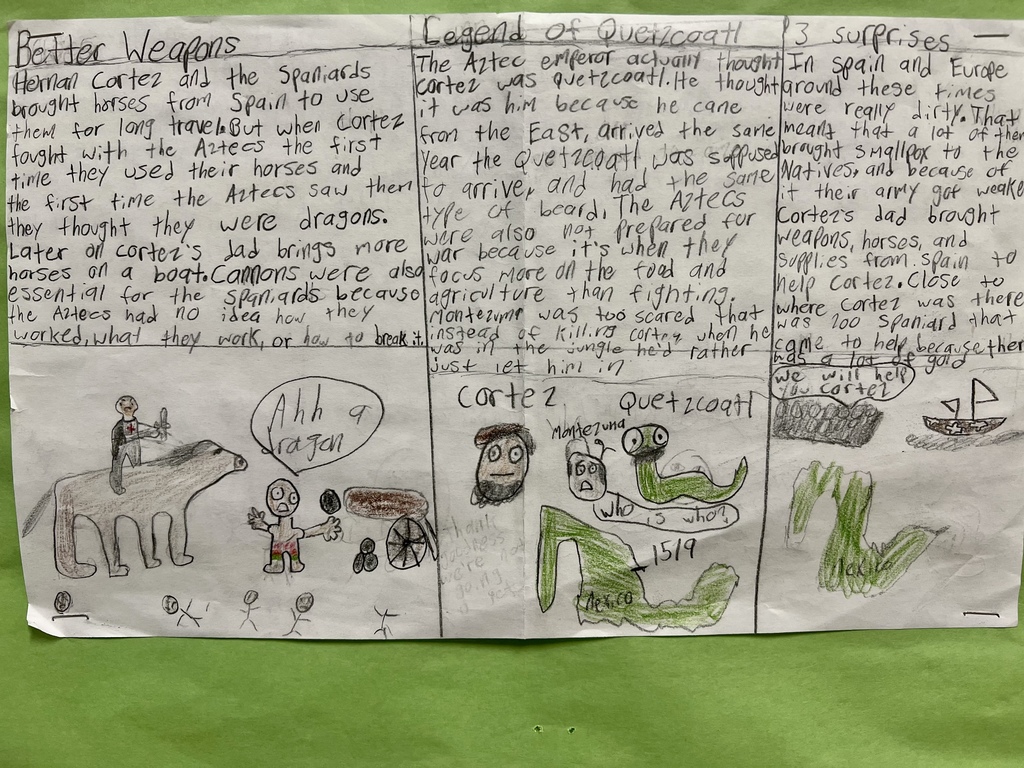 Better Weapons
Hernan Cortez and the Spaniards
brought horses from Spain to use
them for long travel. But when Cortez
fought with the Aztecs the first
time they used their horses and
the first time the Aztecs saw them
they thought they were dragons.
Later on Cortez's dad brings more
horses on a boat. Cannons were also
essential for the Spaniards because
the Aztecs had no idea how they
worked, what they work, or how to break it.
Ahh a
dragon
Legend of Quetzcoatl
The Aztec emperor actually thought
Cortez was Quetzcoatl. He thought
it was him because he cane
from the East, arrived the same
Year the Quetzcoatl was suppused
to arrive, and had the same
type of beard. The Aztecs
were also not prepared for
war because it's when they
focus more on the food and
agriculture than fighting.
Montezuma was too scared that
instead of killing cortez when he
was in the jungle he'd rather
just let him in
Cortez
Quetzcoatl
Montezuma
who is who?
1519
Mexico
3 surprises
In Spain and Europe
around these times
were really dirty. That
meant that a lot of them
brought smallpox to the
Natives, and because of
it their army got weake
Cortez's dad brought
weapons, horses, and
supplies from Spain to
help Cortez. Close to
where Cortez was there
was 200 Spaniard that
came to help because ther
was a lot of gold
We will help
you Cortez
Mexico